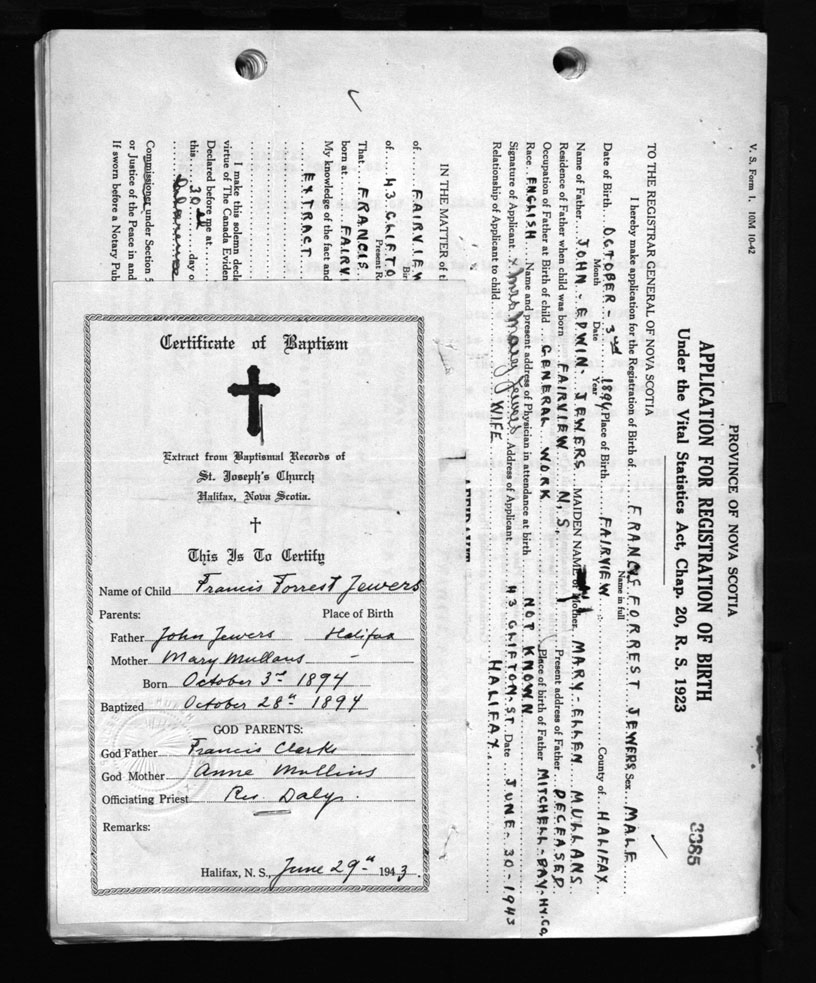 V. S. Form 1. 10M 10-42
PROVINCE OF NOVA SCOTIA
3385
APPLICATION FOR REGISTRATION OF BIRTH
Under the Vital Statistics Act, Chap. 20, R. S. 1923
TO THE REGISTRAR GENERAL OF NOVA SCOTIA
I hereby make application for the Registration of Birth of FRANCIS FORREST JEWERS Sex MALE
Name in full
Date of Birth OCTOBER - 3rd 1894 Place of Birth FAIRVIEW County of HALIFAX
Month Date Year
Name of Father JOHN - EDWIN - JEWERS MAIDEN NAME of Mother MARY - ELLEN MULLANS
Residence of Father when child was born FAIRVIEW N.S. Present address of Father DECEASED
Occupation of Father at Birth of child GENERAL WORK Place of birth of Father MITCHELL-BAY-HX.CO.
Race ENGLISH Name and present address of Physician in attendance at birth NOT KNOWN
Signature of Applicant x Mrs Mary Jewers Address of Applicant 43 CLIFTON-ST. Date JUNE-30-1943
Relationship of Applicant to child WIFE HALIFAX.
IN THE MATTER of t
of FAIRVIEW
Bir
of 43 CLIFTO
Present R
That FRANCIS
born at FAIRVI
My knowledge of the fact and
EXTRACT
I make this solemn decla
virtue of The Canada Eviden
Declared before me at
this 30th day o
Commissioner under Section 5
or Justice of the Peace in and
If sworn before a Notary Pub
Certificate of Baptism
Extract from Baptismal Records of
St. Joseph's Church
Halifax, Nova Scotia.
This Is To Certify
Name of Child Francis Forrest Jewers
Parents: Place of Birth
Father John Jewers Halifax
Mother Mary Mullans -
Born October 3rd 1894
Baptized October 28th 1894
GOD PARENTS:
God Father Francis Clarke
God Mother Anne Mullins
Officiating Priest Rev Daly.
Remarks:
Halifax, N. S., June 29th 1943.